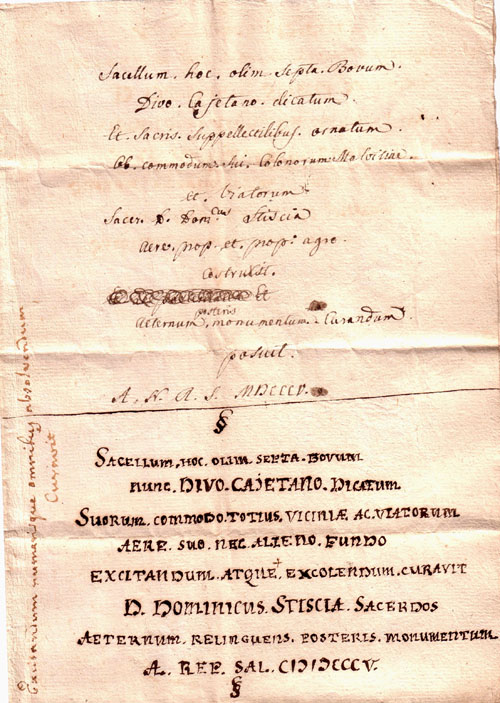 Sacellum. hoc. olim septa. Bovum.
Divo. Cajetano. dicatum
Et. sacris. suppellectilibus. ornatum.
ob. commodum. sui. Colonorum
et. Viatorum
Sacer. D. Dom.cus Stiscia
Aere. prop. et. prop.o agro.
costruxit.
Et
posteris
aeternum. monumentum. Curandum
posuit.
A. N. A. S. MDCCCV.
§
SACELLUM, HOC. OLIM. SEPTA. BOVUM
NUNC. DIVO. CAJETANO. DICATUM
SUORUM. COMMODO. TOTIUS, VICINIÆ. AC. VIATORUM
AERE. SUO. NEC. ALIENO. FUNDO
EXCITANDUM. ATQUE, EXCOLENDUM. CURAVIT
D. DOMINICUS. STISCIA. SACERDOS
AETERNUM. RELINQUENS. POSTERIS. MONUMENTUM
A. REP. SAL. CIƆIƆCCCV.
§
numerisque omnibus absolvendum
Curavit